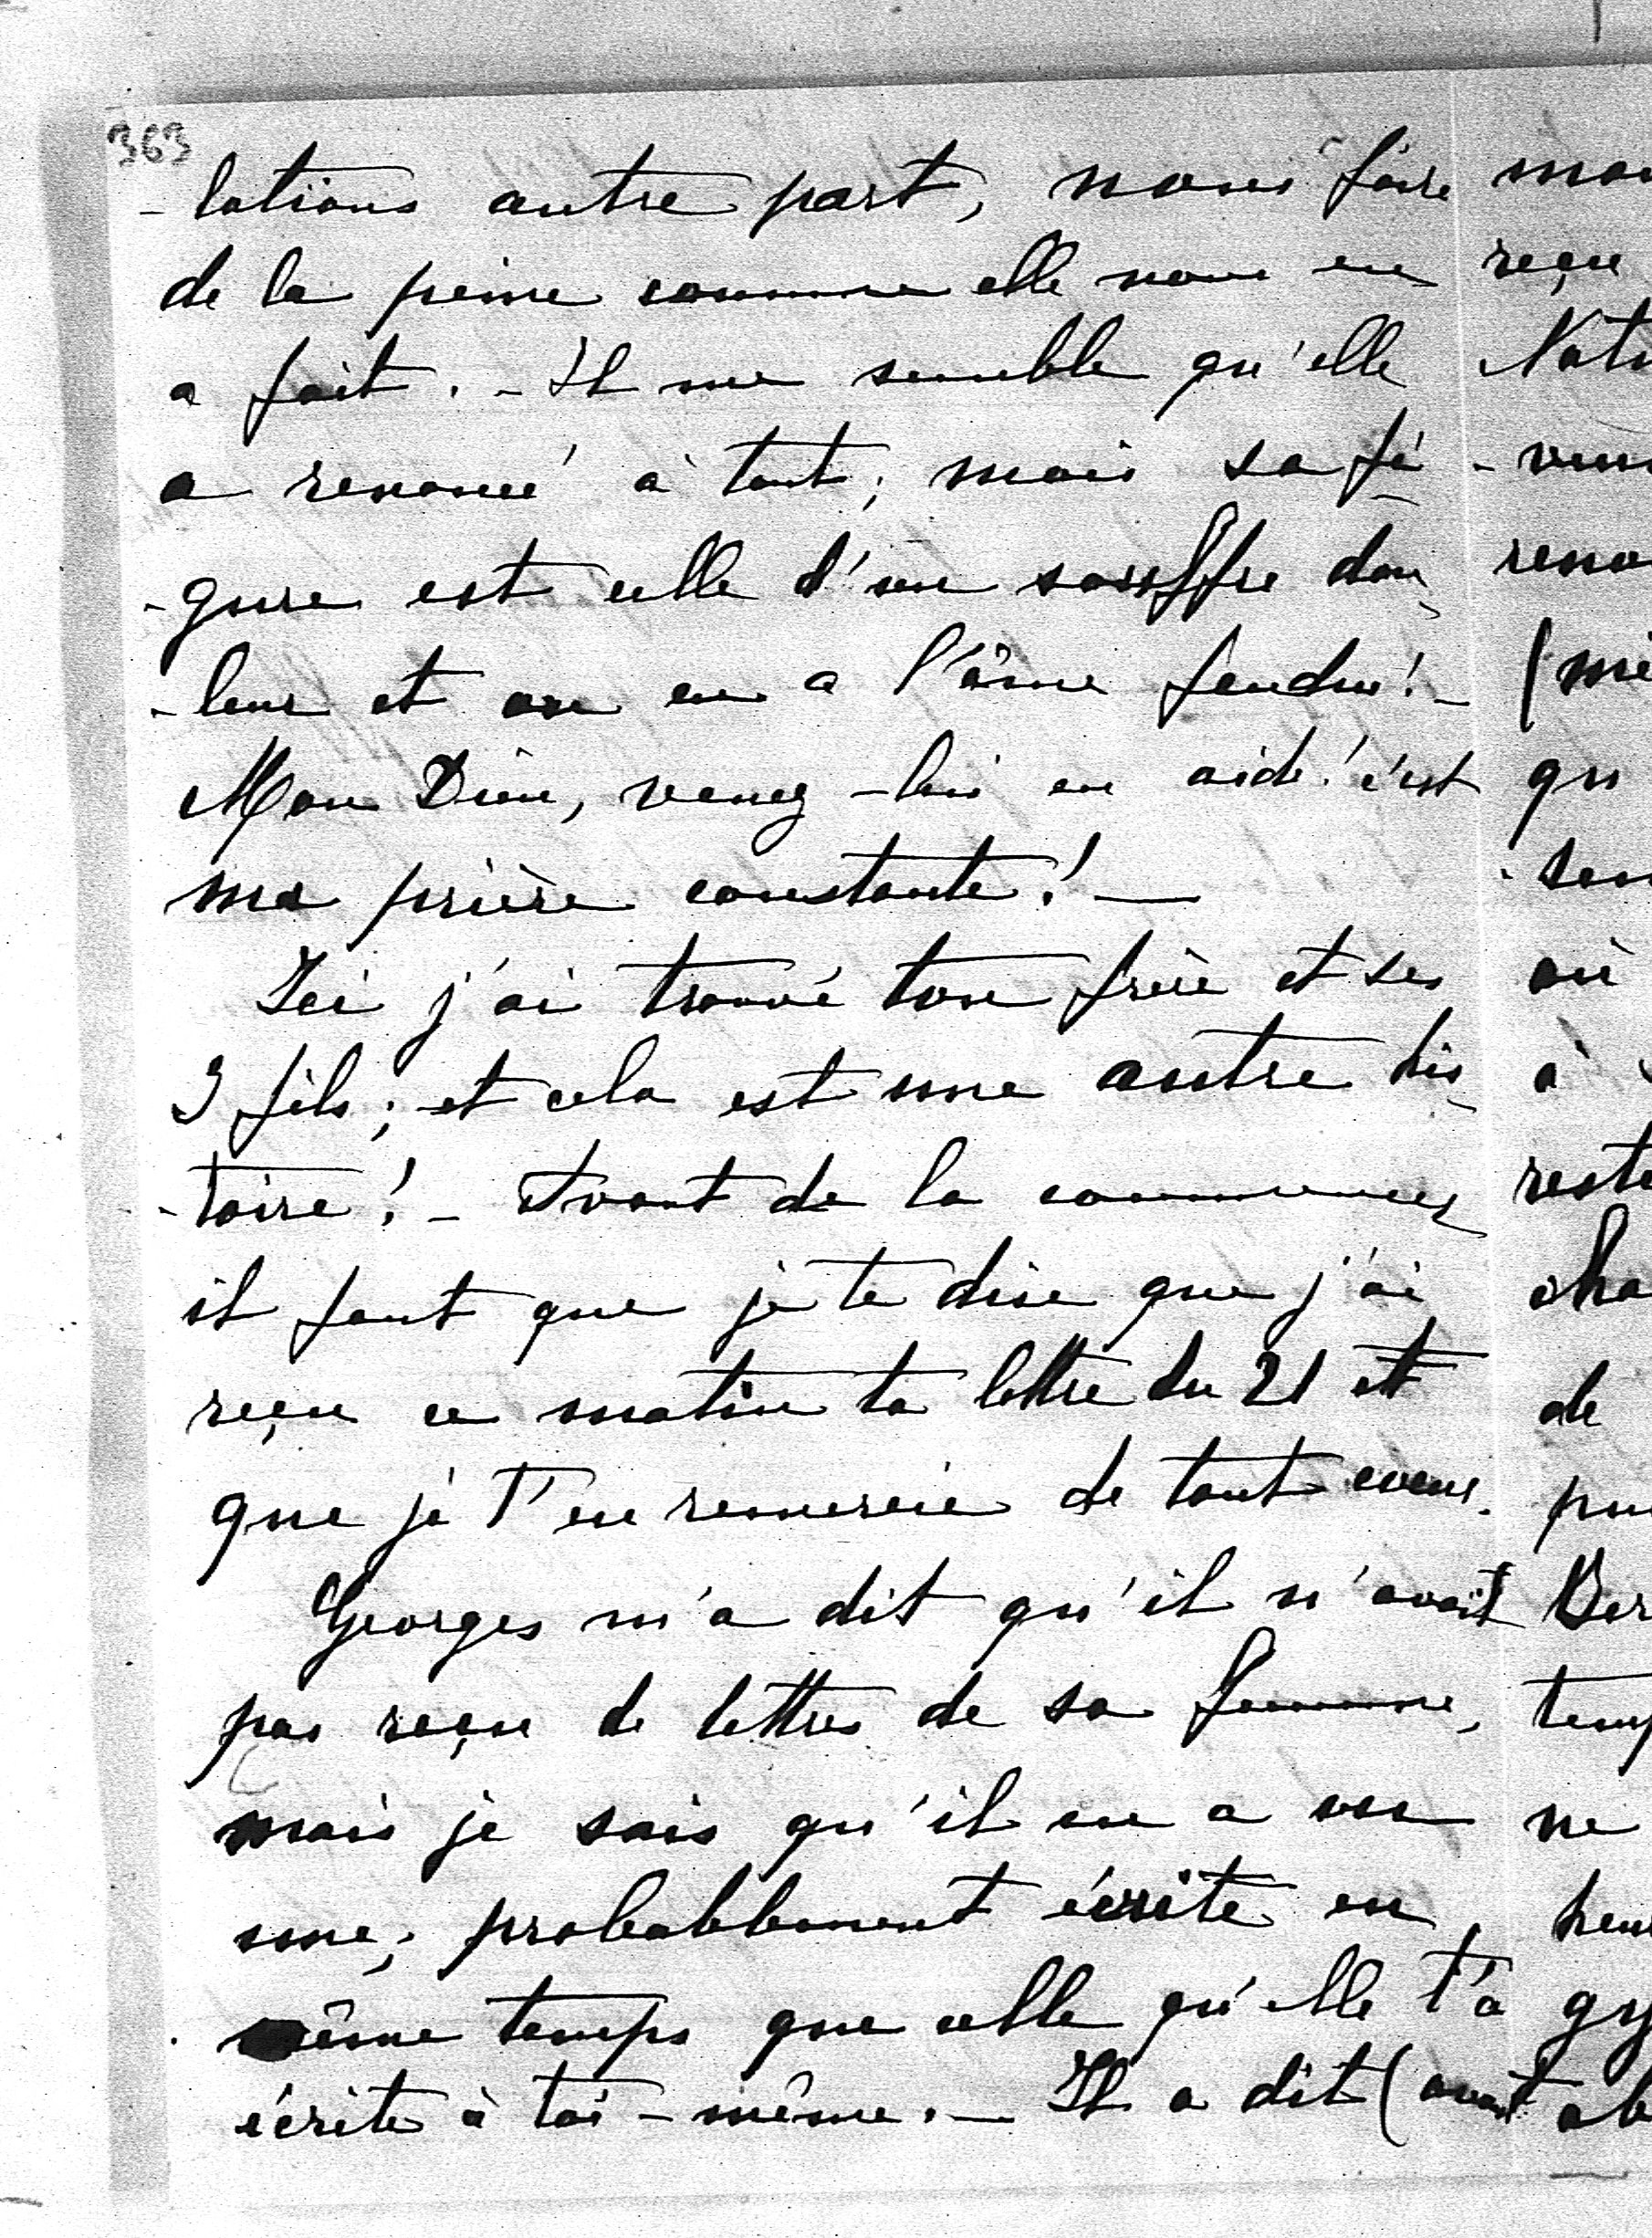 363
-lations autre part, nous faire
de la peine comme elle nous en
a fait. - Il me semble qu'elle
a renoncé à tout; mais sa fi-
-gure est celle d'un souffre dou-
-leur et on en a l'âme fendue! -
Mon Dieu, venez-lui en aide! c'est
ma prière constante! -
Ici j'ai trouvé ton frère et ses
3 fils; et cela est une autre his-
-toire! - Avant de la commencer
il faut que je te dise que j'ai
reçu ce matin ta lettre du 21 et
que je t'en remercie de tout coeur.
Georges m'a dit qu'il n'avait
pas reçu de lettres de sa femme,
mais je sais qu'il en a reçu
une; probablement écrite en
même temps que celle qu'elle t'a
écrite à toi-même. - Il a dit (avant
reçu
qu
où
à
de
ne